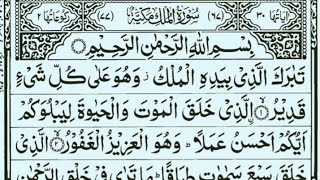 اٰیَاتُهَا ٣٠ (٦٧) سُوْرَةُ الْمُلْكِ مَكِّيَّةٌ (٧٧) رُكُوْعَاتُهَا ٢
بِسْمِ اللهِ الرَّحْمٰنِ الرَّحِيْمِ
تَبٰرَكَ الَّذِيْ بِيَدِهِ الْمُلْكُ ز وَهُوَ عَلٰى كُلِّ شَيْءٍ
قَدِيْرُ ۝١ اِلَّذِيْ خَلَقَ الْمَوْتَ وَالْحَيٰوةَ لِيَبْلُوَكُمْ
اَيُّكُمْ اَحْسَنُ عَمَلًا ط وَهُوَ الْعَزِيْزُ الْغَفُوْرُ ۝٢ الَّذِيْ
خَلَقَ سَبْعَ سَمٰوٰتٍ طِبَاقًا ط مَا تَرٰى فِيْ خَلْقِ الرَّحْمٰنِ